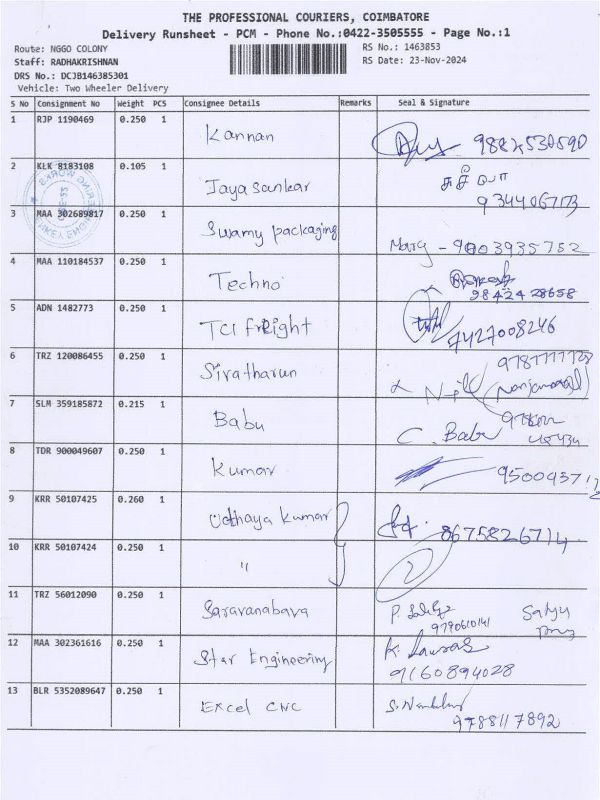 THE PROFESSIONAL COURIERS, COIMBATORE
Delivery Runsheet - PCM - Phone No.:0422-3505555 - Page No.:1
Route: NGGO COLONY
RS No.: 1463853
Staff: RADHAKRISHNAN
RS Date: 23-Nov-2024
DRS No.: DCJB146385301
Vehicle: Two Wheeler Delivery
S No Consignment No Weight PCS Consignee Details Remarks Seal & Signature
1 RJP 1190469 0.250 1 Kannan
2 KLK 8183108 0.105 1 Jaya sankar சசிகலா
9344067173
3 MAA 302689817 0.250 1 Swamy packaging - 9003935752
4 MAA 110184537 0.250 1 Techno
98424 28658
5 ADN 1482773 0.250 1 TCI freight
7427008246
6 TRZ 120086455 0.250 1 Sivatharun
7 SLM 359185872 0.215 1 Babu C. Babu
8 TDR 900049607 0.250 1 Kumar
9 KRR 50107425 0.260 1 Udhaya kumar 8675826714
10 KRR 50107424 0.250 1 "
11 TRZ 56012090 0.250 1 Saravanabava P.
9790610141
12 MAA 302361616 0.250 1 Star Engineering K.
9160894028
13 BLR 5352089647 0.250 1 EXCEL CNC S.
9788117892